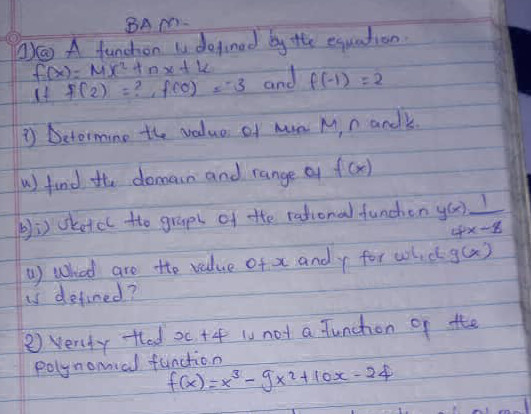 BAM.
1)(a) A function is defined by the equation.
f(x) = Mx² + nx + k
If f(2) = ?, f(0) = -3 and f(-1) = 2
i) Determine the value of M, n and k.
ii) find the domain and range of f(x)
b) i) Sketch the graph of the rational function y(x) 1
4x-8
ii) What are the value of x and y for which g(x)
is defined?
2) Verify that x+4 is not a function of the
polynomial function
f(x) = x³ - 9x² + 10x - 24